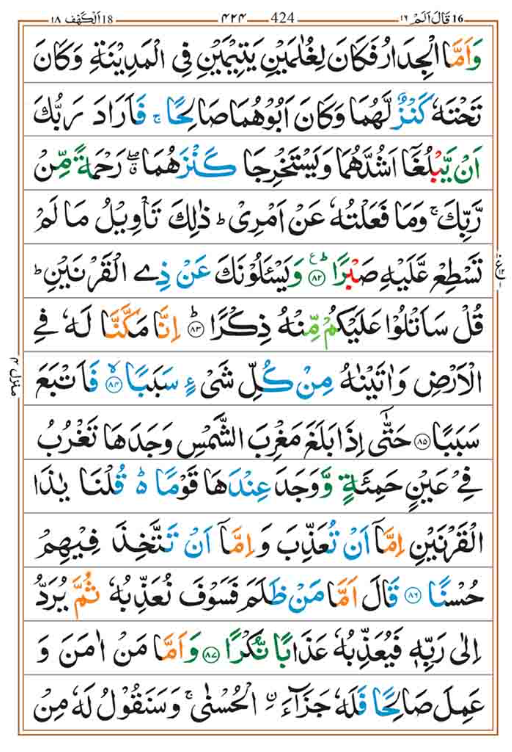 16 قَالَ اَلَمْ ١٦ — 424 — ٤٢٤ — 18 اَلْكَهْف ١٨
وَاَمَّا الْجِدَارُ فَكَانَ لِغُلٰمَيْنِ يَتِيْمَيْنِ فِى الْمَدِيْنَةِ وَكَانَ
تَحْتَهٗ كَنْزٌ لَّهُمَا وَكَانَ اَبُوْهُمَا صَالِحًا ۚ فَاَرَادَ رَبُّكَ
اَنْ يَّبْلُغَاۤ اَشُدَّهُمَا وَيَسْتَخْرِجَا كَنْزَهُمَا ۖۗ رَحْمَةً مِّنْ
رَّبِّكَ ۚ وَمَا فَعَلْتُهٗ عَنْ اَمْرِىْ ؕ ذٰلِكَ تَاْوِيْلُ مَا لَمْ
تَسْطِعْ عَّلَيْهِ صَبْرًا ؕ‏ ﴿٨٢﴾ وَيَسْـَٔلُوْنَكَ عَنْ ذِى الْقَرْنَيْنِ ؕ
قُلْ سَاَتْلُوْا عَلَيْكُمْ مِّنْهُ ذِكْرًا ؕ‏ ﴿٨٣﴾ اِنَّا مَكَّنَّا لَهٗ فِى
الْاَرْضِ وَاٰتَيْنٰهُ مِنْ كُلِّ شَىْءٍ سَبَبًا ۙ‏ ﴿٨٤﴾ فَاَتْبَعَ
سَبَبًا‏ ﴿٨٥﴾ حَتّٰٓى اِذَا بَلَغَ مَغْرِبَ الشَّمْسِ وَجَدَهَا تَغْرُبُ
فِىْ عَيْنٍ حَمِئَةٍ وَّوَجَدَ عِنْدَهَا قَوْمًا ؕ قُلْنَا يٰذَا
الْقَرْنَيْنِ اِمَّاۤ اَنْ تُعَذِّبَ وَاِمَّاۤ اَنْ تَتَّخِذَ فِيْهِمْ
حُسْنًا‏ ﴿٨٦﴾ قَالَ اَمَّا مَنْ ظَلَمَ فَسَوْفَ نُعَذِّبُهٗ ثُمَّ يُرَدُّ
اِلٰى رَبِّهٖ فَيُعَذِّبُهٗ عَذَابًا نُّكْرًا‏ ﴿٨٧﴾ وَاَمَّا مَنْ اٰمَنَ وَ
عَمِلَ صَالِحًا فَلَهٗ جَزَآءَ ۨ الْحُسْنٰى ۚ وَسَنَقُوْلُ لَهٗ مِنْ
منزل ٤